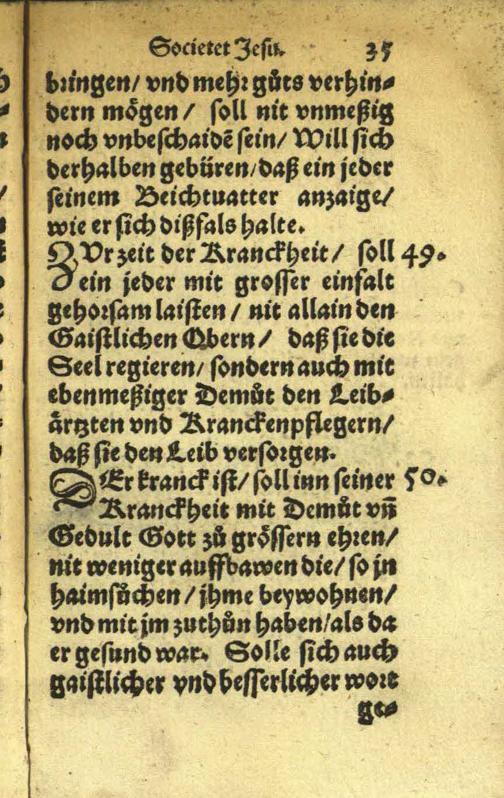 Societet Jesu. 35
bringen/ vnd mehr gůts verhin⸗
dern mögen/ soll nit vnmeßig
noch vnbeschaidē sein/ Will sich
derhalben gebüren/ daß ein jeder
seinem Beichtuatter anzaige/
wie er sich dißfals halte.
ZUr zeit der Kranckheit/ soll 49.
ein jeder mit grosser einfalt
gehorsam laisten/ nit allain den
Gaistlichen Obern/ daß sie die
Seel regieren/ sondern auch mit
ebenmeßiger Demůt den Leib⸗
ärtzten vnd Kranckenpflegern/
daß sie den Leib versorgen.
DEr kranck ist/ soll inn seiner 50.
Kranckheit mit Demůt vñ
Gedult Gott zů grössern ehren/
nit weniger auffbawen die/ so jn
haimsůchen/ jhme beywohnen/
vnd mit jm zuthůn haben/ als da
er gesund war. Solle sich auch
gaistlicher vnd besserlicher wort
ge⸗